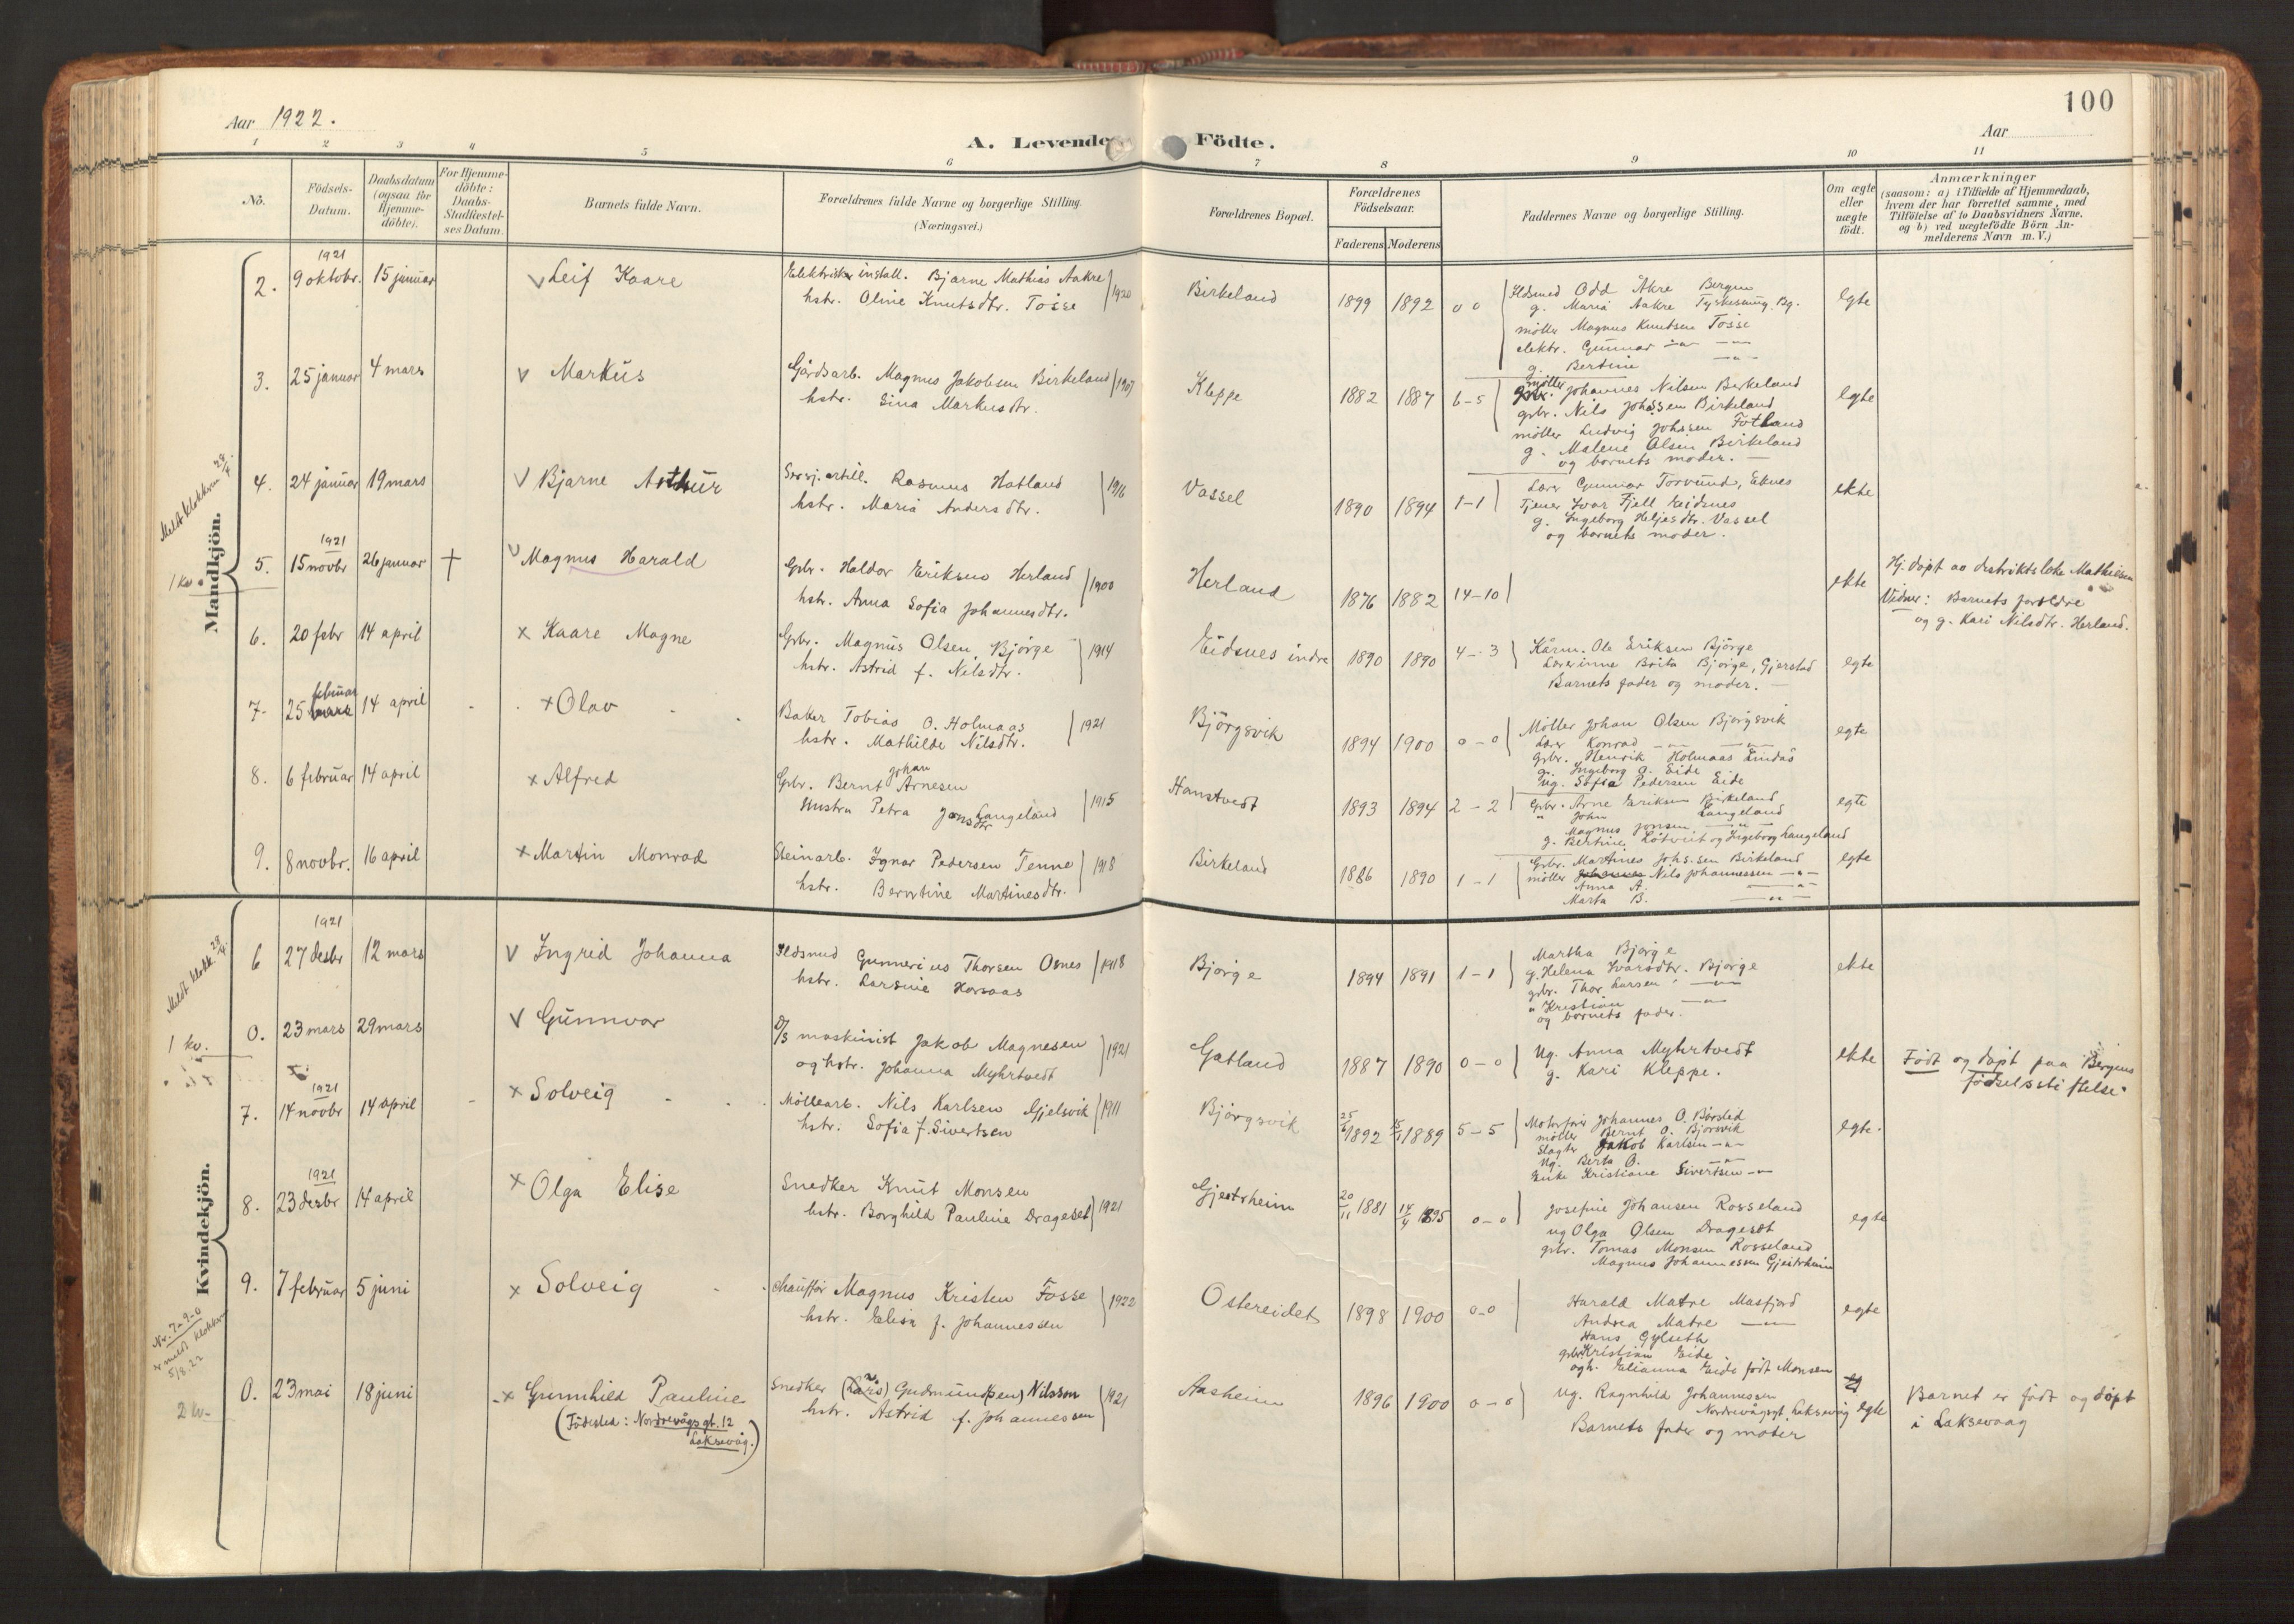 100
Aar 1922.
A. Levende Födte.
Aar
1 2 3 4 5 6 7 8 9 10 11
No.
Födsels-
Datum.
Daabsdatum
(ogsaa for
Hjemme-
döbte).
For Hjemme-
döbte:
Daabs-
Stadfæstel-
ses Datum.
Barnets fulde Navn.
Forældrenes fulde Navne og borgerlige Stilling.
(Næringsvei.)
Forældrenes Bopæl.
Forældrenes
Födselsaar.
Faderens Moderens
Faddernes Navne og borgerlige Stilling.
Om ægte
eller
uægte
födt.
Anmærkninger
(saasom: a) i Tilfælde af Hjemmedaab,
hvem der har forrettet samme, med
Tilföielse af to Daabsvidners Navne.
og b) ved uægtefödte Börn An-
melderens Navn m. V.)
Mandkjön.
1921
2. 9 oktobr. 15 januar v Leif Kaare
Elektriker install. Bjarne Mathias Aakre
hstr. Oline Knutsdtr. Tosse 1920
Birkeland 1899 1892 0 0
Odd Åkre Bergen
g. Maria Aakre
möller Magnus Knutsen Tosse
elektr. Gunnar -"- -"-
g. Bertine -"-
egte
3. 25 januar 4 mars v Markus
Gårdsarb. Magnus Jakobsen Birkeland
hstr. Sina Markusdtr. 1907
Kleppe 1882 1887 6-5
möller Johannes Nilsen Birkeland
grbr. Nils Johssen Birkeland
möller Ludvig Johssen Fotland
g. Malene Olsen Birkeland
og barnets moder.
egte
4. 24 januar 19 mars v Bjarne Arthur
Sersj. artill. Rasmus Hatland
hstr. Maria Andersdtr. 1916
Vassel 1890 1894 1-1
Lærer Gunnar Torvund, Eknes
Tjener Ivar Fjell Eidsnes
g. Ingeborg Heljesdtr. Vassel
og barnets moder.
ekte
1921
5. 15 novbr 26 januar + v Magnus Harald
Grbr. Haldor Eriksen Herland
hstr. Anna Sofia Johannesdtr. 1900
Herland 1876 1882 14-10
ekte
Hj. döpt av distriktslæke Mathiesen
Vidner: Barnets foreldre
og g. Kari Nilsdtr. Herland.
6. 20 febr 14 april x Kaare Magne
Grbr. Magnus Olsen Bjørge
hstr. Astrid f. Nilsdtr. 1914
Eidsnes indre 1890 1890 4-3
Kårm. Ole Eriksen Bjørge
Lærerinne Brita Bjørge, Gjerstad
Barnets fader og moder.
egte
februar
7. 25 mars 14 april x Olav
Baker Tobias O. Holmaas
hstr. Mathilde Nilsdtr. 1921
Bjørgsvik 1894 1900 0-0
Möller Johan Olsen Bjørgsvik
Lærer Konrad -"- -"-
grbr. Henrik Holmaas Lindås
g. Ingeborg O. Eide
Ug. Sofia Pedersen Eide
egte
8. 6 februar 14 april x Alfred
Johan
Grbr. Bernt Arnesen
Hustru Petra Jonsdtr Langeland 1915
Hanstvedt 1893 1894 2-2
Grbr. Arne Eriksen Birkeland
" John Langeland
Magnus Jonsen -"-
g. Bertine Lötveit og Ingeborg Langeland
egte
9. 8 novbr. 16 april x Martin Monrad
Steinarb. Ignar Pedersen Tenne
hstr. Berntine Martinesdtr. 1918
Birkeland 1886 1890 1-1
Grbr. Martines Johs.sen Birkeland
möller Johannes Nils Johannessen -"-
Anna A. -"-
Marta B. -"-
egte
Kvindekjön.
1921
6 27 desbr 12 mars v Ingrid Johanna
Ildsmed Gunnerius Thorsen Osnes
hstr. Larsine Horsaas 1918
Bjørge 1894 1891 1-1
Martha Bjørge
g. Helena Ivarsdtr. Bjørge
grbr. Thor Larsen -"-
" Kristian -"-
og barnets fader.
ekte
1 kv.
0. 23 mars 29 mars v Gunnvor
D/S maskinist Jakob Magnesen
og hstr. Johanna Myhrtvedt 1921
Gatland 1887 1890 0-0
Ug. Anna Myhrtvedt
g. Kari Kleppe.
ekte
Født og döpt paa Bergens
fødselsstiftelse.
1921
7. 14 novbr 14 april x Solveig
Möllearb. Nils Karlsen Gjelsvik
hstr. Sofia f. Sivertsen 1911
Bjørgsvik 1892 1889 5-5
Johannes O. Børsled
möller Bernt O. Bjørsvik
Slagter Jakob Karlsen -"-
Ug. Berta O. -"-
Enke Kristiane Sivertsen -"-
egte.
1921
8. 23 desbr 14 april x Olga Elise
Snedker Knut Monsen
hstr. Borghild Pauline Drageset 1921
Gjestrheim 20/11 1881 14/4 1895 0-0
Josefine Johansen Rosseland
ug Olga Olsen Drageset
grbr. Tomas Monsen Rosseland
Magnus Johannessen Gjestrheim
egte
9. 7 februar 5 juni x Solveig
Chauffør Magnus Kristen Fosse
hstr. Elisa f. Johannessen 1922
Ostereidet 1898 1900 0-0
Harald Matre Masfjord
Andrea Matre -"-
Hans Gylseth
grbr Kristian Eide
ogh. Elianna Eide födt Monsen
egte
Nr. 7-9-0
er meldt klokker
5/8.22
0. 23 mai 18 juni x Gunnhild Pauline
(Födested: Nordrevågsgt. 12
Laksevåg.)
Snedker (Lars) Gudmund(sen) Nilssen
hstr. Astrid f. Johannessen 1921
Aasheim 1896 1900 0-0
Ug. Ragnhild Johannessen
Nordrevågsgt. Laksevåg
Barnets fader og moder
egte
Barnet er født og döpt
i Laksevaag